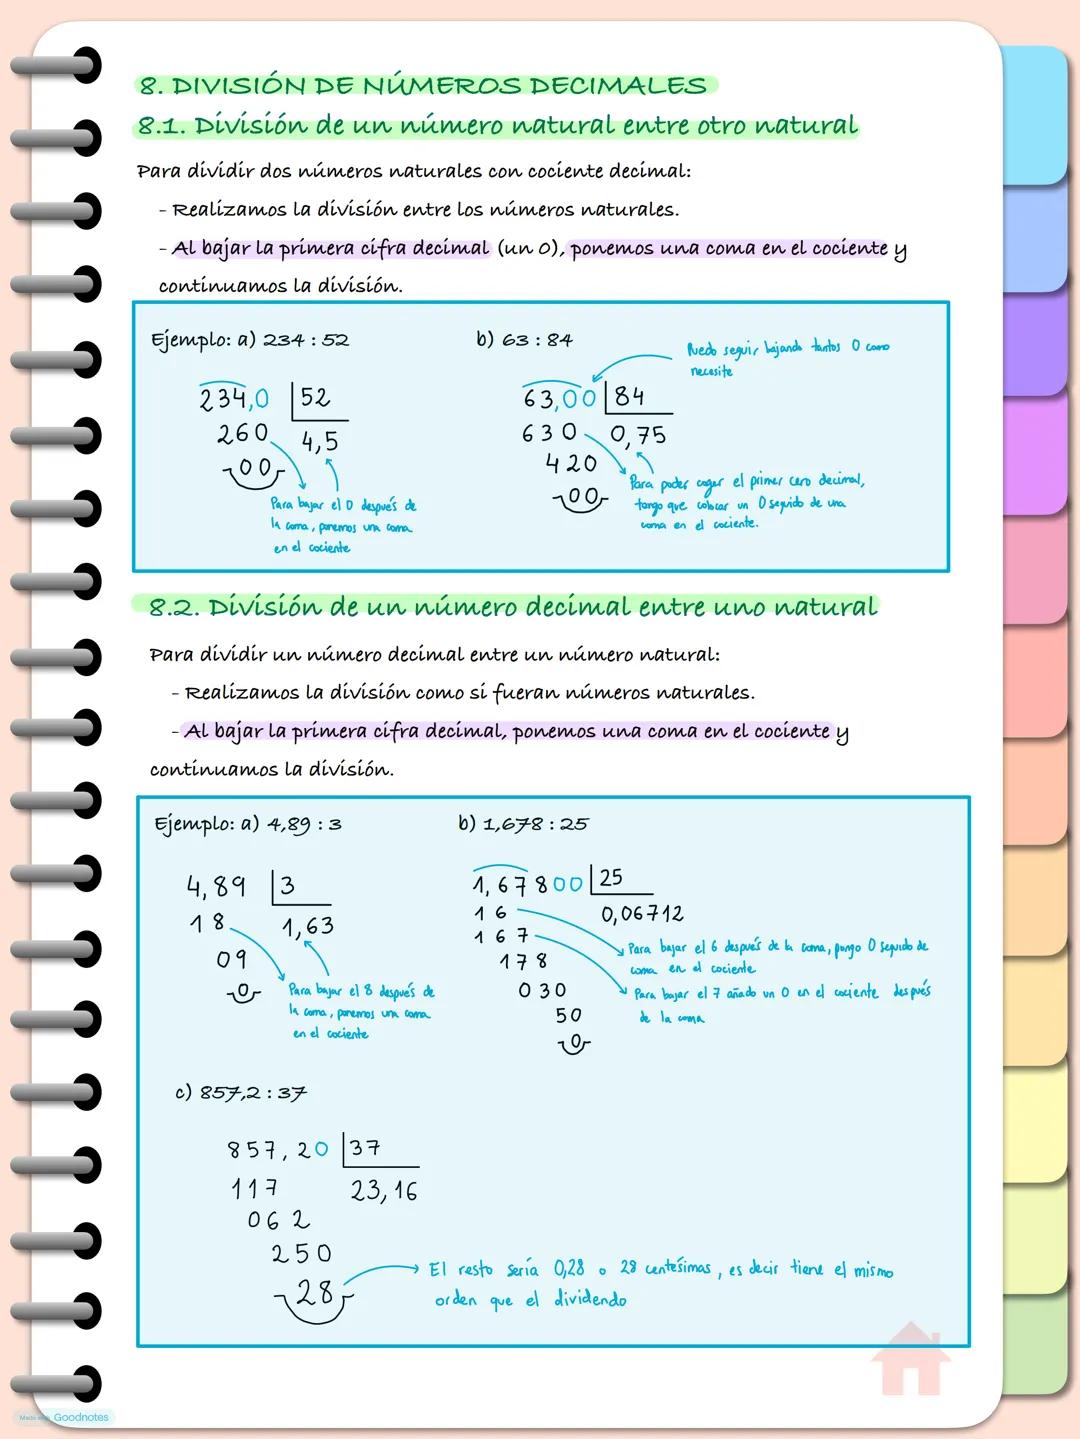 8. DIVISIÓN DE NÚMEROS DECIMALES
8.1. División de un número natural entre otro natural
Para dividir dos números naturales con cociente decimal:
- Realizamos la división entre los números naturales.
- Al bajar la primera cifra decimal (un 0), ponemos una coma en el cociente y
continuamos la división.
Ejemplo: a) 234 : 52
234,0 52
260 4,5
00
Para bajar el 0 después de
la coma, ponemos una coma
en el cociente
b) 63 : 84
Puedo seguir bajando tantos 0 como
necesite
63,00 84
630 0,75
420
00
Para poder coger el primer cero decimal,
tengo que colocar un 0 seguido de una
coma en el cociente.
8.2. División de un número decimal entre uno natural
Para dividir un número decimal entre un número natural:
- Realizamos la división como si fueran números naturales.
- Al bajar la primera cifra decimal, ponemos una coma en el cociente y
continuamos la división.
Ejemplo: a) 4,89 : 3
4,89 3
18 1,63
09
0
Para bajar el 8 después de
la coma, ponemos una coma
en el cociente
b) 1,678 : 25
1,67800 25
16 0,06712
167
178
030
50
0
Para bajar el 6 después de la coma, pongo 0 seguido de
coma en el cociente
Para bajar el 7 añado un 0 en el cociente después
de la coma
c) 857,2 : 37
857,20 37
117 23,16
062
250
28
El resto sería 0,28 o 28 centésimas, es decir tiene el mismo
orden que el dividendo
Made with Goodnotes